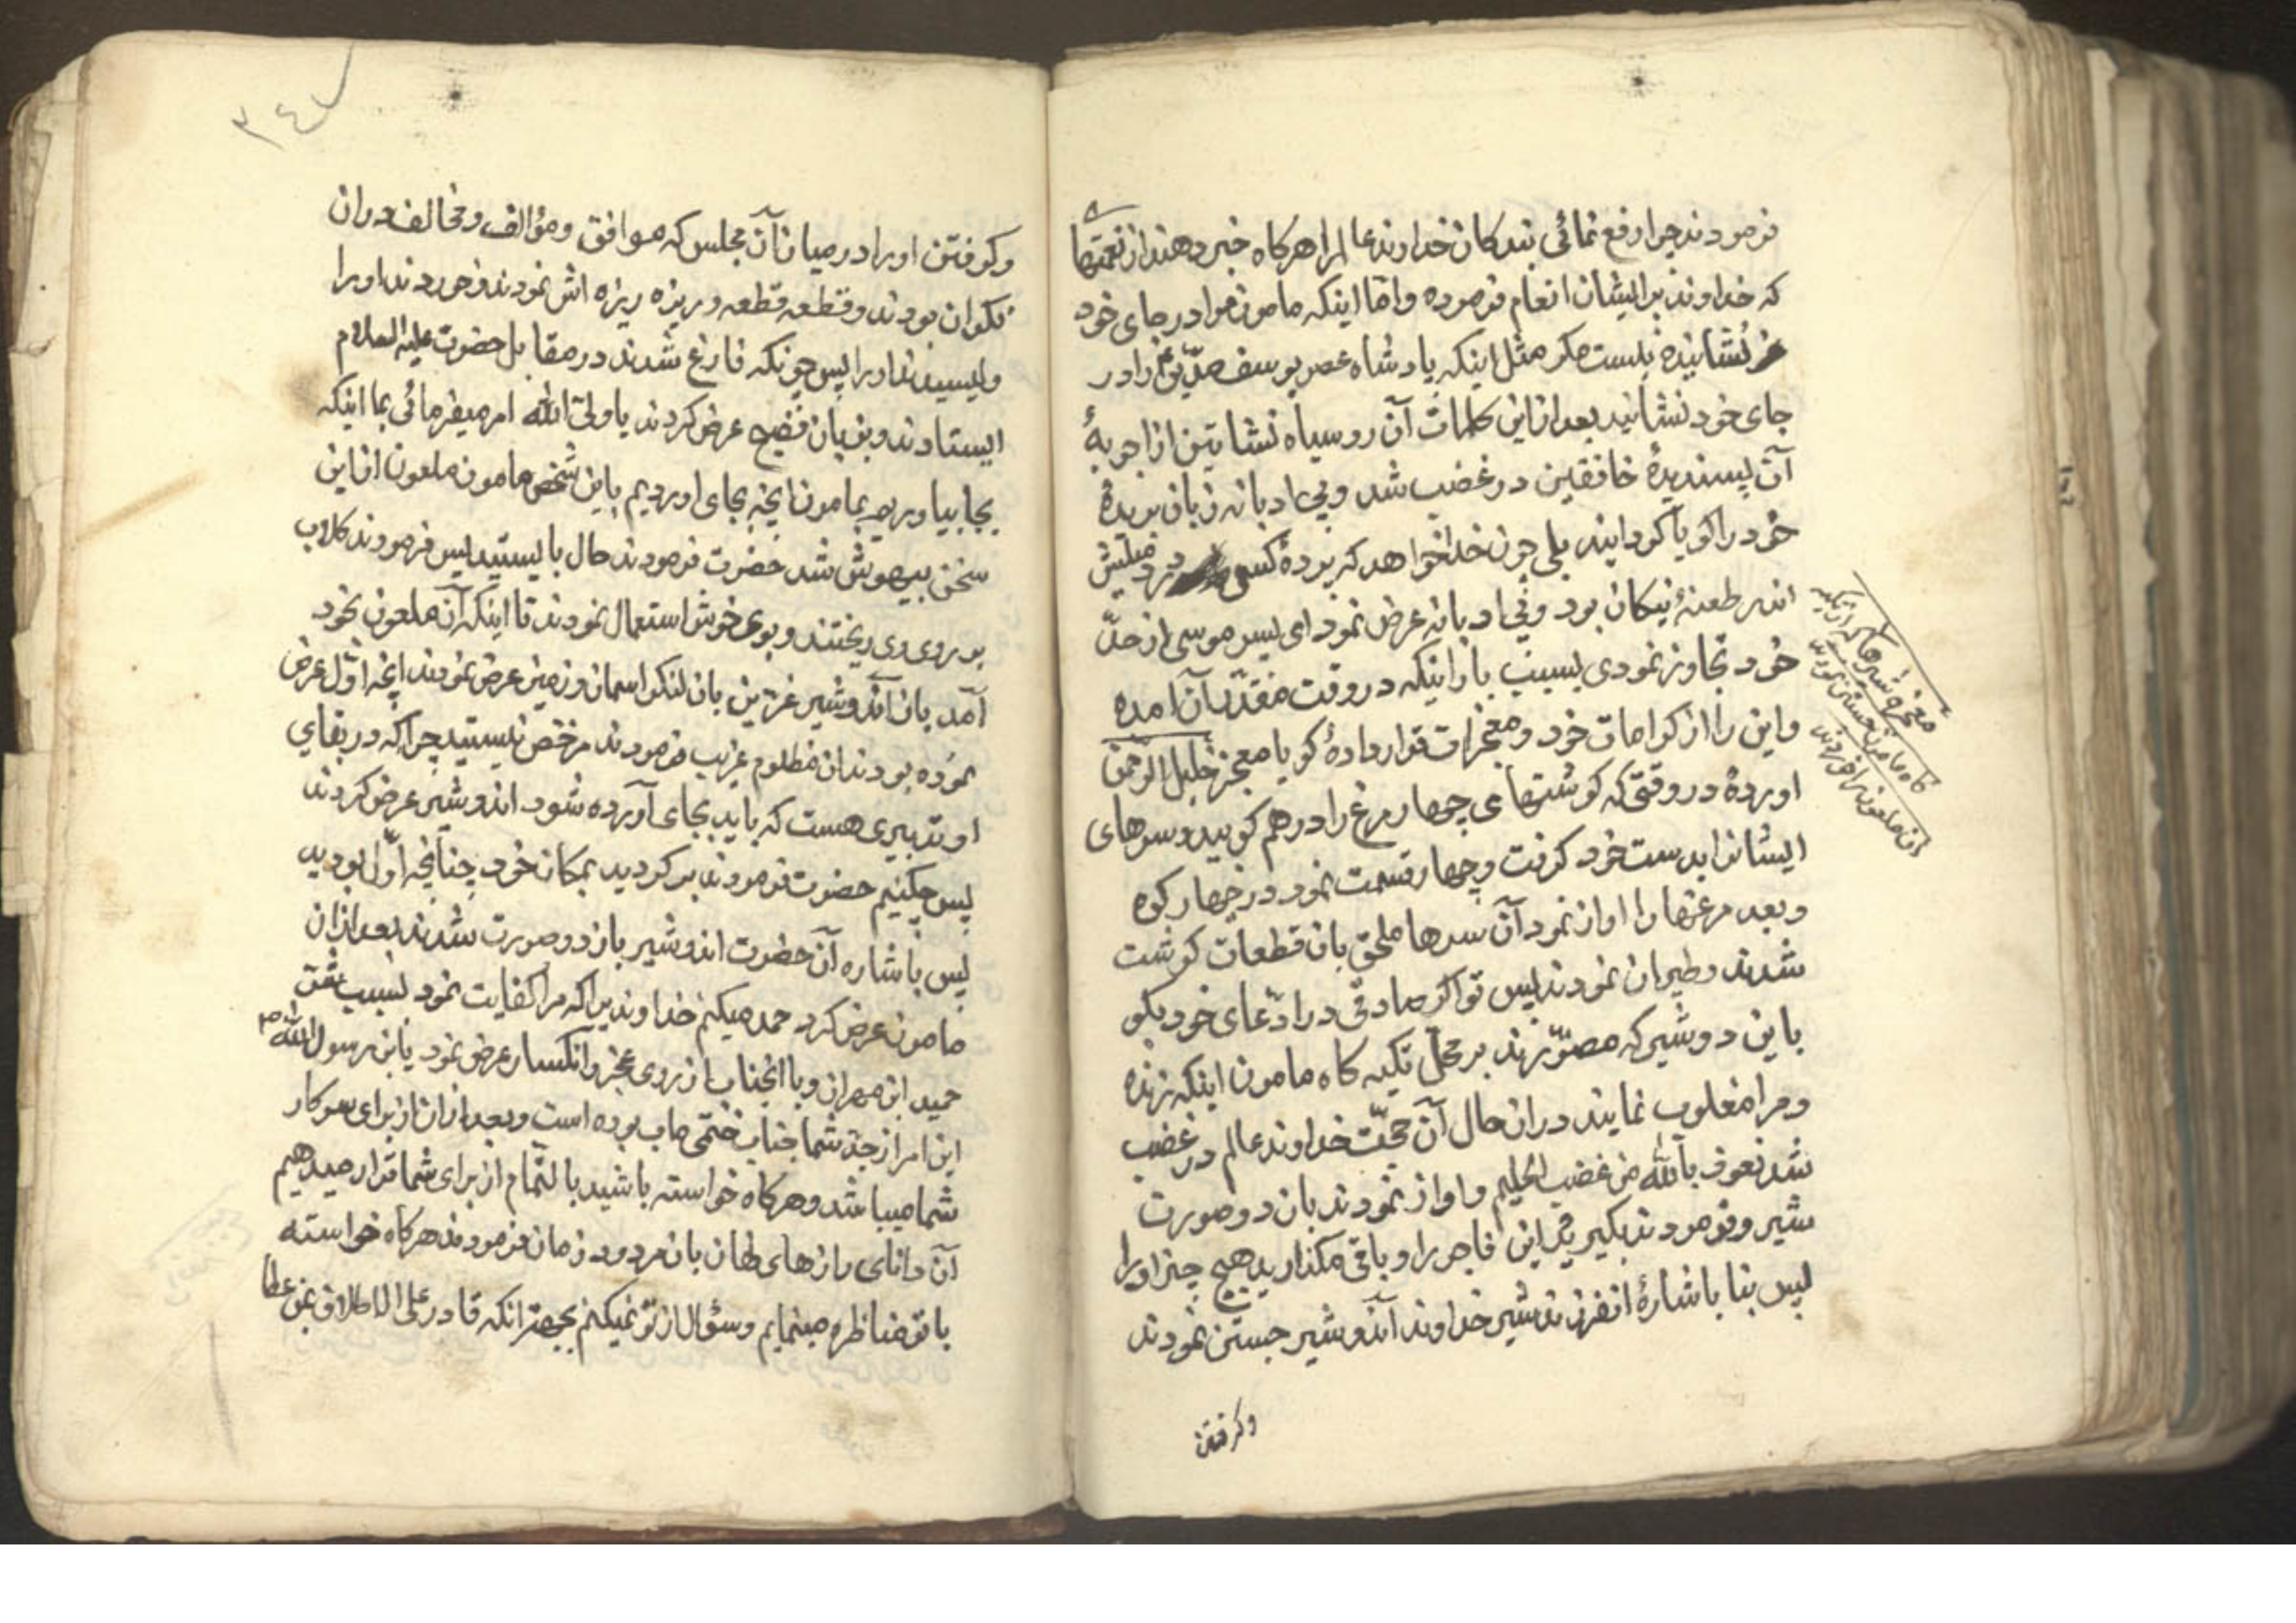 فرمودند چرا رفع نمائی بندکان خداوند عالم را هرکاه خبر دهند از نعمتها
که خداوند بر ایشان انعام فرموده واما اینکه مامون مرا در جای خود
نشانیده نیست مکر مثل اینکه پادشاه عصر یوسف صدیق را در
جای خود نشانید بعد از این کلمات آن روسیاه نشاتین از اجوبهٔ
آن پسندیدهٔ خافقین در غضب شد وبی ادبانه زبان بریدهٔ
خود را کویا کردانید بلی چون خدا خواهد که پردهٔ کس درد میلش
اندر طعنهٔ نیکان بود وبی ادبانه عرض نمود ای پسر موسی از حدّ
خود تجاوز نمودی بسبب بارانیکه در وقت مقدّر آن آمده
واین را از کرامات خود ومعجزات قرار دادهٔ کویا معجز خلیل الرحمن
اوردهٔ در وقتی که کوشتهای چهار مرغ را درهم کوبید وسرهای
ایشانرا بدست خود کرفت وچهار قسمت نمود در چهار کوه
وبعد مرغها را اواز نمود آن سرها ملحق بان قطعات کوشت
شدند وطیران نمودند پس تو اکر صادقی در ادّعای خود بکو
باین دو شیر که مصوّرند بر محلّ تکیه کاه مامون اینکه زنده
ومرا مغلوب نمایند در ان حال آن حجّت خداوند عالم در غضب
شد نعوذ بالله من غضب الحلیم واواز نمودند بان دو صورت
شیر وفرمودند بکیرید این فاجر را وباقی مکذارید هیچ چیز او را
پس بنا باشارهٔ انفرزند شیر خداوند آندو شیر جستن نمودند
وکرفتن
معجزه شیرها که از تکیه
کاه مامون جستن نمودند
ان ملعون را خوردند
٣٤٧
وکرفتن اورا در میان آن مجلس که موافق ومؤالف ومخالف در ان
نکران بودند وقطعه قطعه وریزه ریزه اش نمودند وخوردند اورا
ولیسیدند اورا پس چونکه فارغ شدند در مقابل حضرت علیه السلام
ایستادند وبزبان فصیح عرض کردند یا ولیّ الله امر میفرمائی بما اینکه
بجا بیاوریم بمامون انچه بجای اوردیم باین شخص مامون ملعون از این
سخن بیهوش شد حضرت فرمودند حال بایستید پس فرمودند کلاب
بر روی وی ریختند وبوی خوش استعمال نمودند تا اینکه آن ملعون بخود
آمد بان آندو شیر غرّین بان لنکر اسمان وزمین عرض نمودند انچه اوّل عرض
نموده بودند ان مظلوم غریب فرمودند مرخص نیستید چرا که در بقای
او تدبیری هست که باید بجای آورده شود اندو شیر عرض کردند
پس چکنیم حضرت فرمودند برکردید بمکان خود چنانچه اوّل بودید
پس باشاره آن حضرت اندو شیر بان دو صورت شدند بعد از ان
مامون عرض کرد حمد میکنم خداوندیرا که مرا کفایت نمود بسبب
حمید ابن مهران وبا انجناب از روی عجز وانکسار عرض نمود یابن رسول الله ص
این امر از جدّ شما جناب ختمی ماب بوده است وبعد از ان از برای سرکار
شما میباشد وهرکاه خواسته باشید بالتّمام از برای شما قرار میدهیم
آن دانای رازهای نهان بان مردود زمان فرمودند هرکاه خواسته
با تو مناظره مینمایم وسؤال از تو نمیکنم بجهة انکه قادر علی الاطلاق بمن عطا